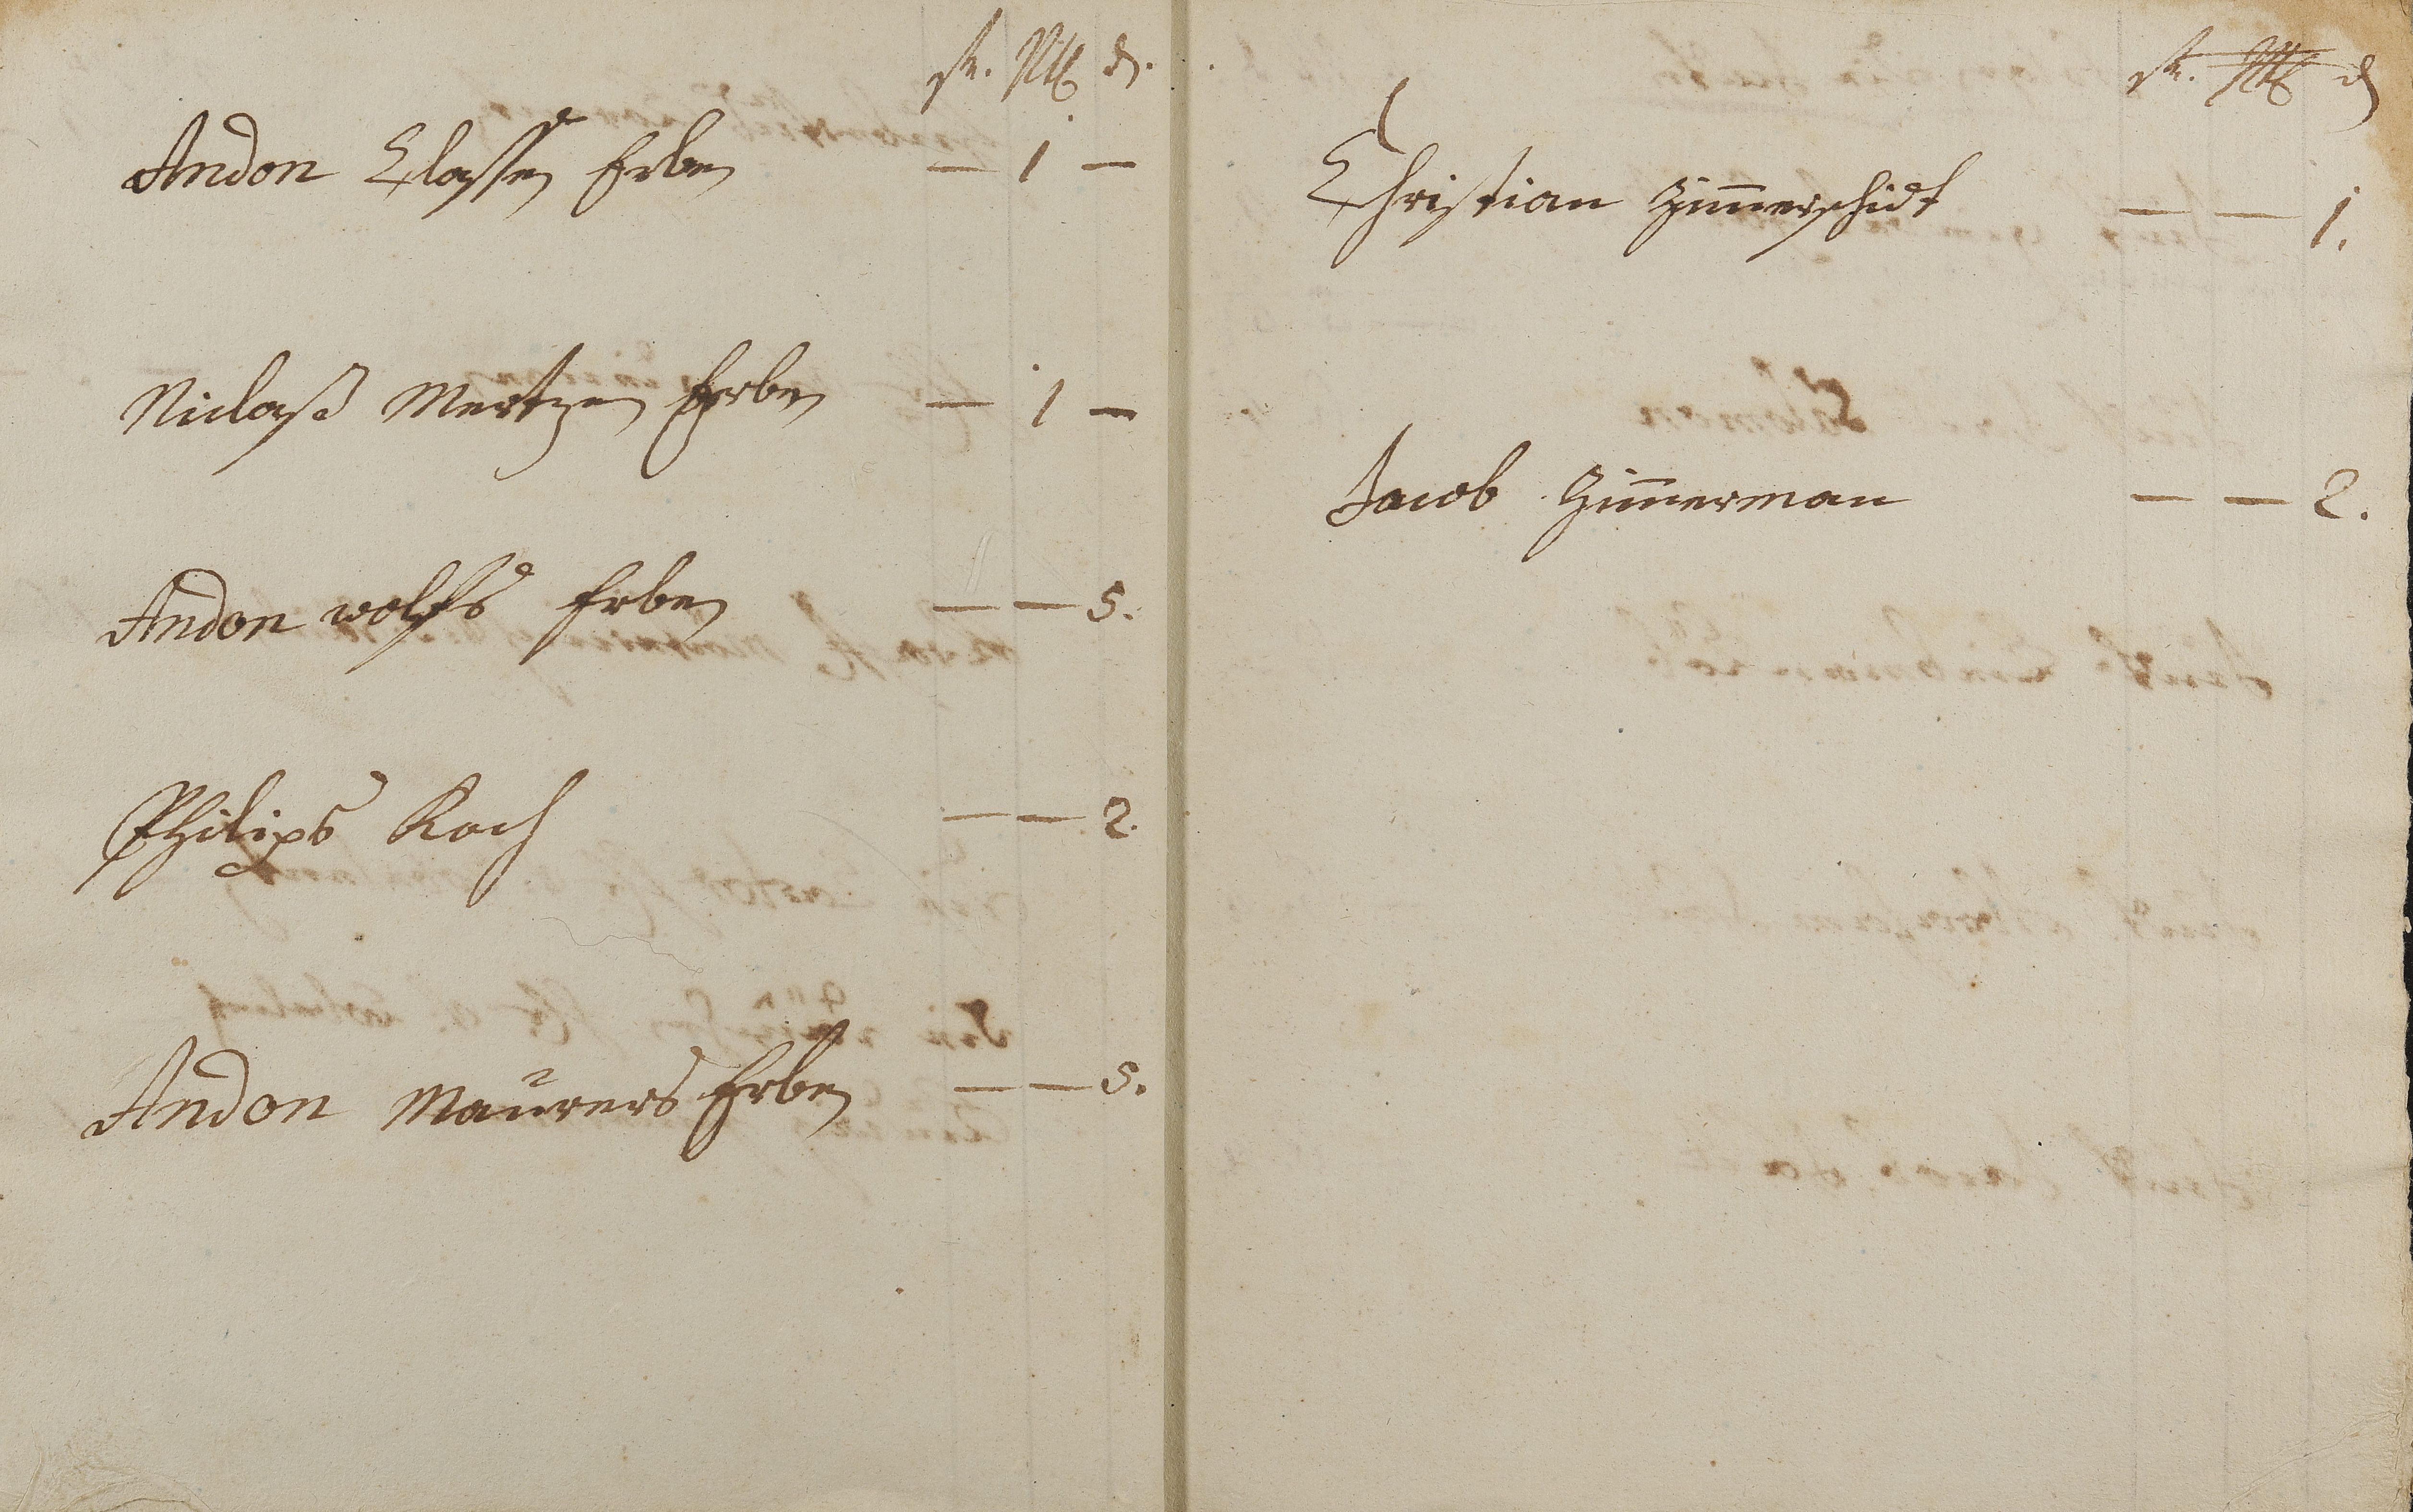 st. Ml d.
Andon Classen Erben — 1 —
Niclaß Mertzen Erben — 1 —
Andon wolffs Erben — — 5.
Philips Koch — — 2.
Andon Maurers Erben — — 5.
st. Ml d
Christian Zim̄erschidt — — 1.
Jacob Zim̄erman — — 2.